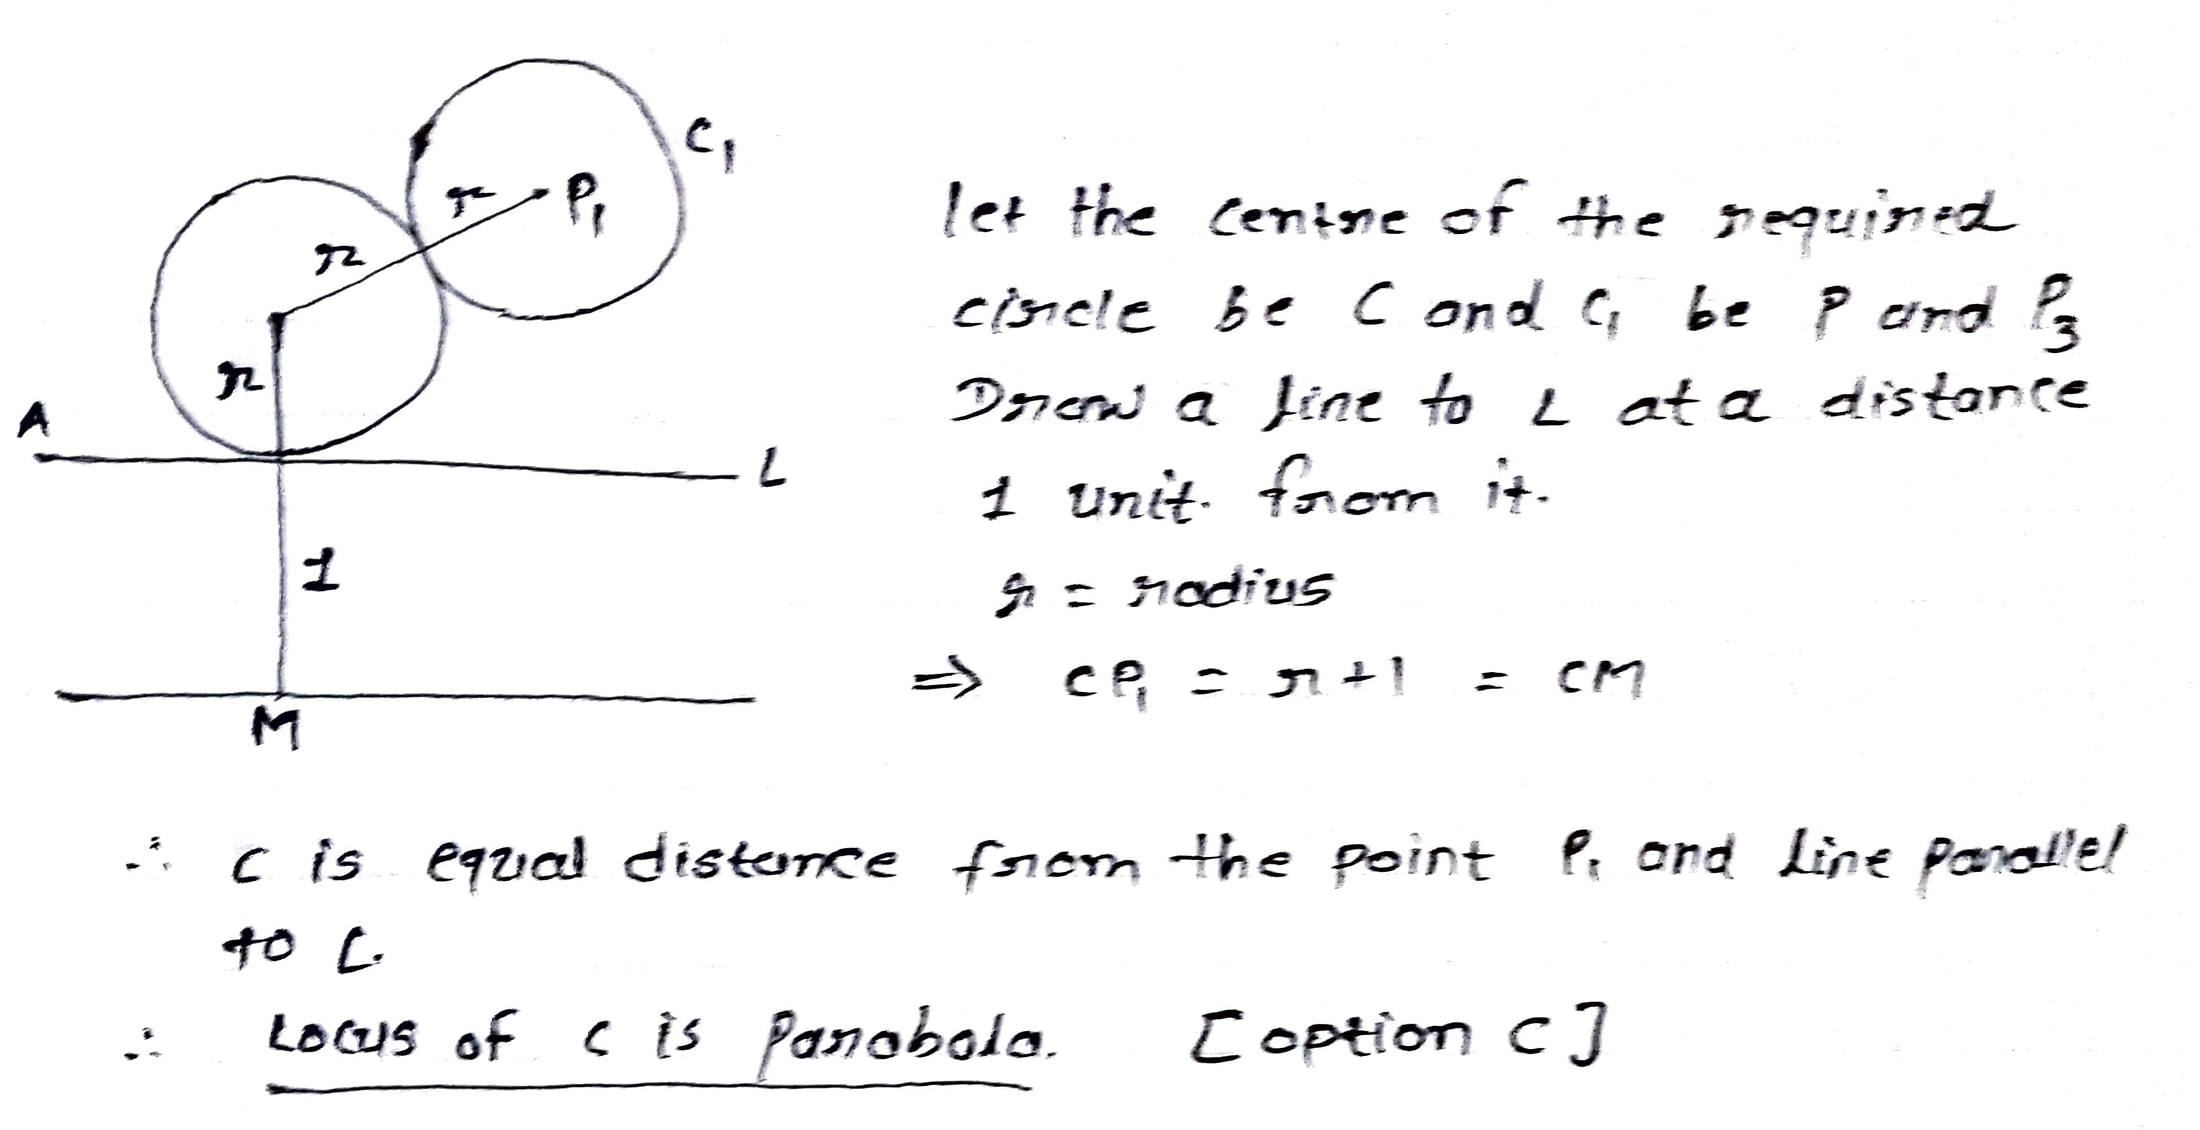 C₁
r P₁
r
r
A
L
1
M
let the centre of the required
circle be C and C₁ be P and P₃
Draw a line to L at a distance
1 unit. from it.
r = radius
⇒ CP₁ = r+1 = CM
∴ C is equal distance from the point P₁ and Line parallel
to L.
∴ Locus of C is Parabola. [option C]